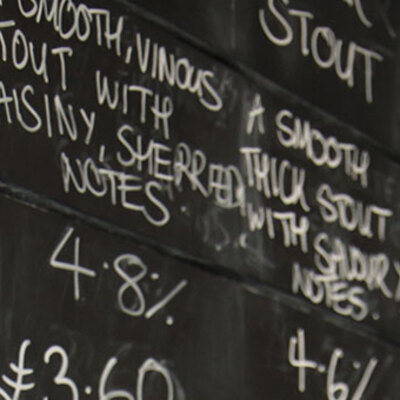 SMOOTH, VINOUS
TOUT WITH
AISINY, SHERRIED
NOTES.
4.8%
£3.60
STOUT
A SMOOTH
THICK STOUT
WITH SAVOURY
NOTES.
4.6%